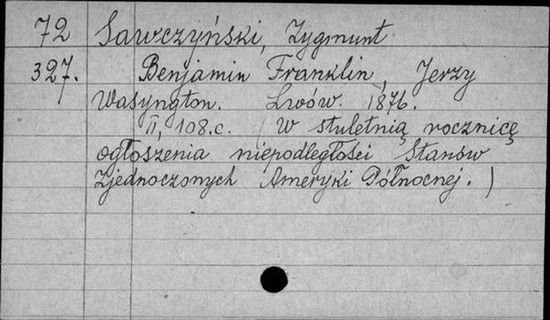 72 Sawczyński, Zygmunt
327. Benjamin Franklin, Jerzy
Wasyngton. Lwów. 1876.
II, 108.c. (W stuletnią rocznicę
ogłoszenia niepodległości Stanów
Zjednoczonych Ameryki Północnej.)